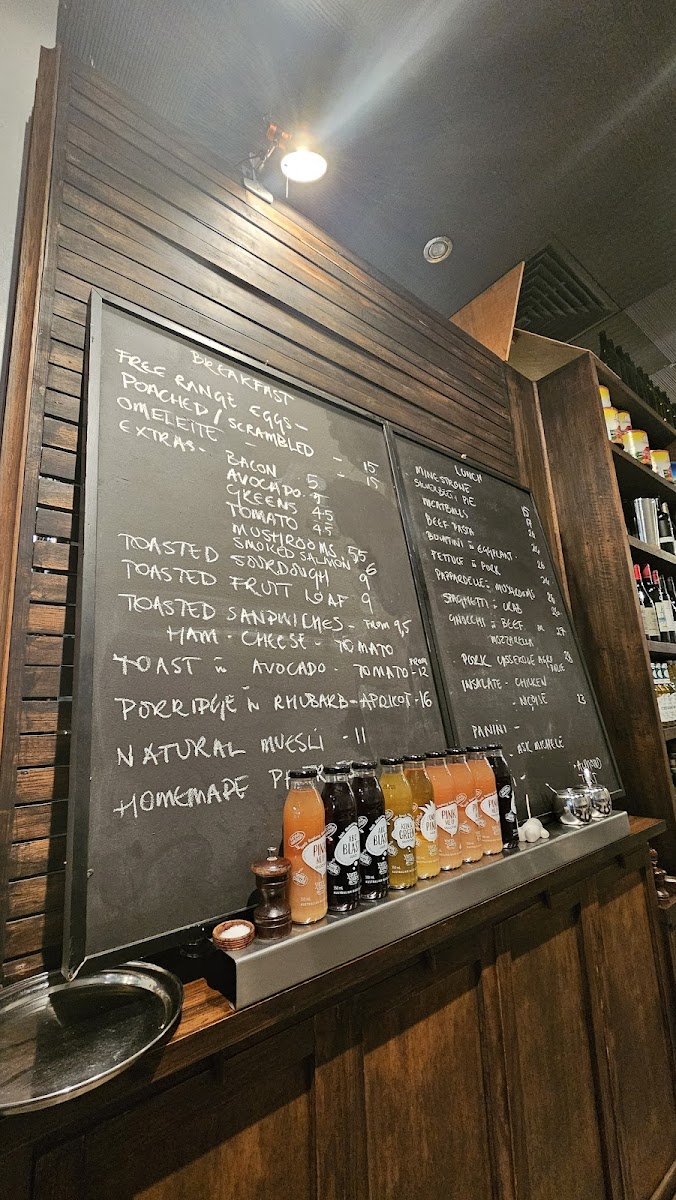 BREAKFAST
FREE RANGE EGGS -
POACHED / SCRAMBLED - 15
OMELETTE - - 15
EXTRAS - BACON 5
AVOCADO - 5
GREENS 4.5
TOMATO 4.5
MUSHROOMS 5.5
SMOKED SALMON 6
TOASTED SOURDOUGH 9
TOASTED FRUIT LOAF 9
TOASTED SANDWICHES - FROM 9,5
HAM - CHEESE - TOMATO
TOAST ñ AVOCADO - TOMATO - FROM 12
PORRIDGE ñ RHUBARB - APRICOT - 16
NATURAL MUESLI - 11
HOMEMADE
LUNCH
MINESTRONE 15
PIE
MEATBALLS
BEEF PASTA
BUCATINI ñ EGGPLANT
FETTUCE ñ PORK 24
PAPPARDELLE ñ MUSHROOMS 26
SPAGHETTI ñ CRAB 26
GNOCCHI ñ BEEF 27
MOZZARELLA
PORK
INSALATE - CHICKEN
- NIÇOISE 23
PANINI -
ASK MICHELE
PINK
BLACK
BLACK
GREEN
PINE
PINK
PINK